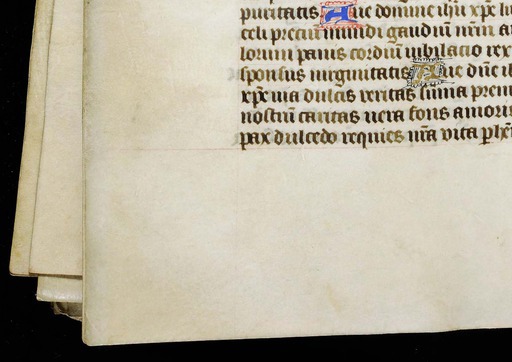 puritatis Aue domine ihu xpe
celi precium mundi gaudiū nrm
lorum panis cordiū iubilacio rex
sponsus uirginitatis Aue dn̄e ih
xp̄e uia dulcis ueritas
nostrū caritas uera fons amoris
pax dulcedo requies nr̄a vita